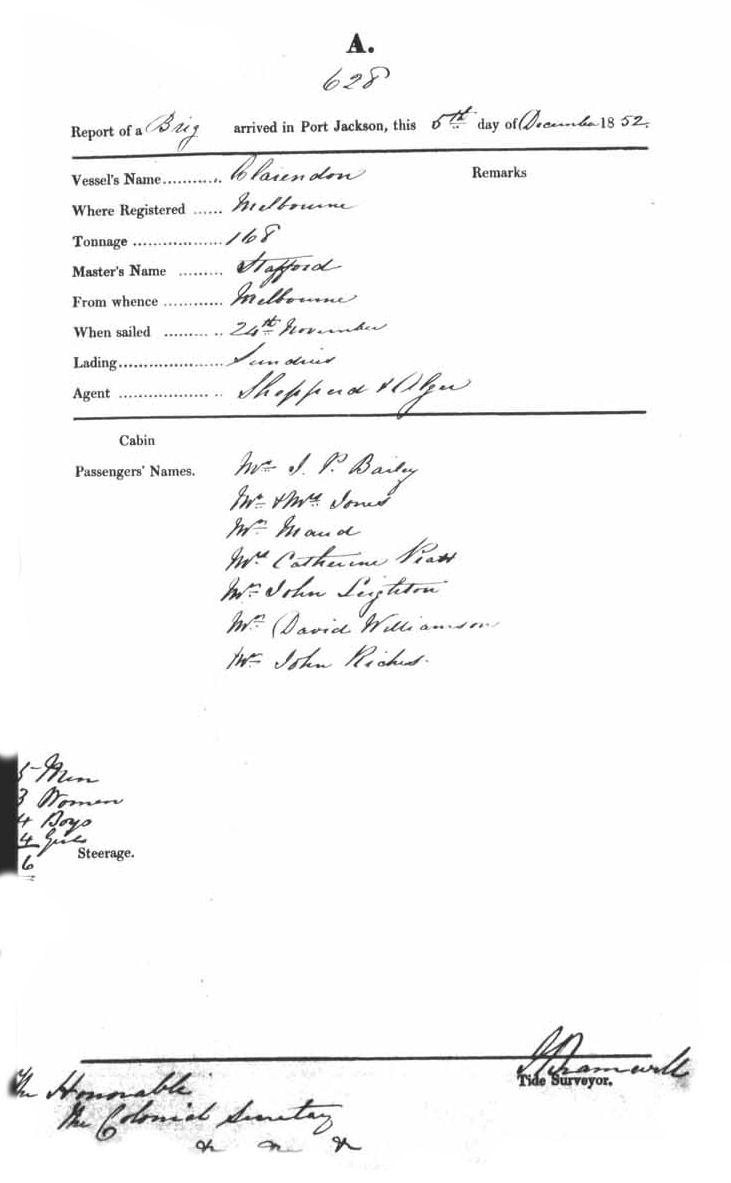 A.
628
Report of a Brig arrived in Port Jackson, this 5th day of December 1852.
Vessel's Name............ Clarendon Remarks
Where Registered ...... Melbourne
Tonnage .................. 168
Master's Name ......... Stafford
From whence ............ Melbourne
When sailed ......... .. 24th November
Lading..................... Sundries
Agent .................. .. Shepperd & Alger
Cabin
Passengers' Names. Mr J. P. Bailey
Mr & Mrs Jones
Mr Maud
Mrs Catherine
Mr John Leighton
Mr David Williamson
Mr John Riches.
5 Men
3 Women
4 Boys
4 Girls
6
Steerage.
Bramwell
Tide Surveyor.
The Honorable
The Colonial Secretary